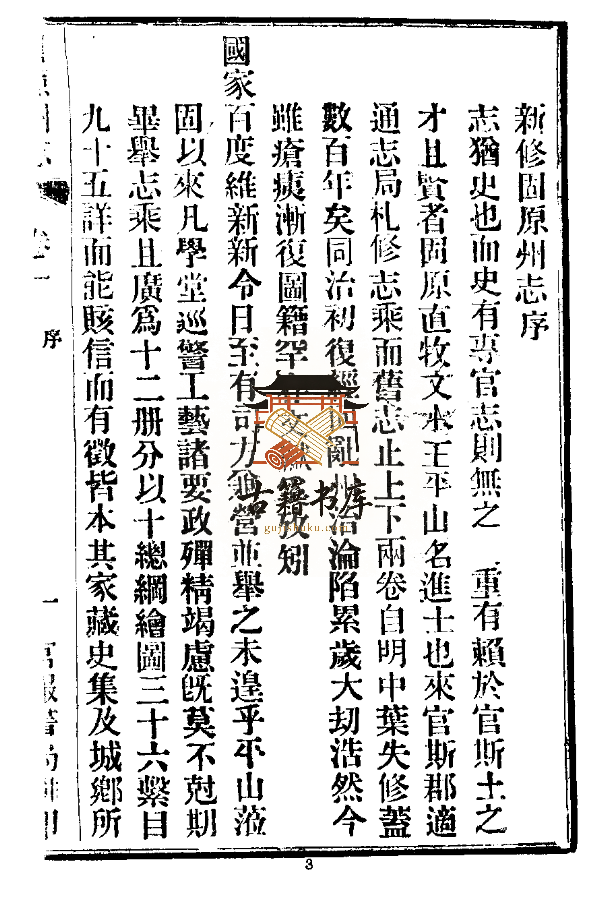 新修固原州志序
志猶史也而史有專官志則無之 重有賴於官斯土之
才且賢者固原直牧文水王平山名進士也來官斯郡適
通志局札修志乘而舊志止上下兩卷自明中葉失修蓋
數百年矣同治初復經回亂州治淪陷累歲大劫浩然今
雖瘡痍漸復圖籍罕 文獻 矧
國家百度維新新令日至有司力兼營並舉之未遑乎平山蒞
固以來凡學堂巡警工藝諸要政殫精竭慮旣莫不尅期
畢舉志乘且廣爲十二册分以十總綱繪圖三十六繫目
九十五詳而能賅信而有徵皆本其家藏史集及城鄉所
州志
卷一
序
一
官報書局排印
古籍书库
gujishuku.com
3